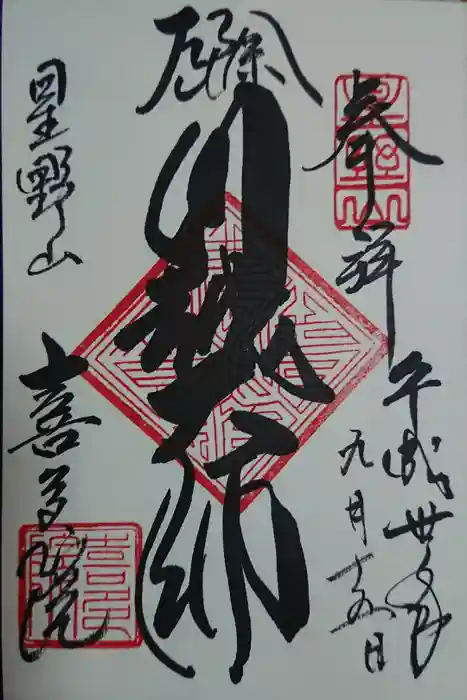 奉拝
平成
九月十五日
厄除
川越大師
星野山
喜多院